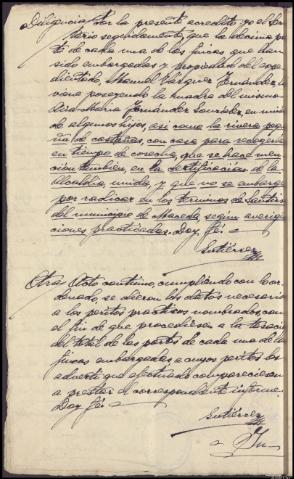 Diligencia. Por la presente acredito yo el Secre-
tario seguidamente, que la décima par-
te de cada una de las fincas que han
sido embargadas y propiedad del expe-
dientado, Manuel Vázquez Fernández, la
viene poseyendo la madre del mismo
Dña. María Fernández, en unión
de algunos hijos, asi como la
de castaños, con casa para recogerse
en tiempo de cosecha, que se hace men-
ción también en la certificación de la
Alcaldía, unida, y que no se embarga
por radicar en los terminos de
del municipio de Maceda, según averigua-
ciones practicadas. Doy fé.=
Gutiérrez
Otra. Acto continuo, cumpliendo con lo or-
denado, se dieron los datos necesarios
a los peritos practicos nombrados, con
el fin de que procediesen a la tasación
del total de las partes de cada una de las
fincas embargadas, a cuyos peritos les
advertí que efectuado comparecieran
a prestar el correspondiente informe.
Doy fé =
Gutiérrez